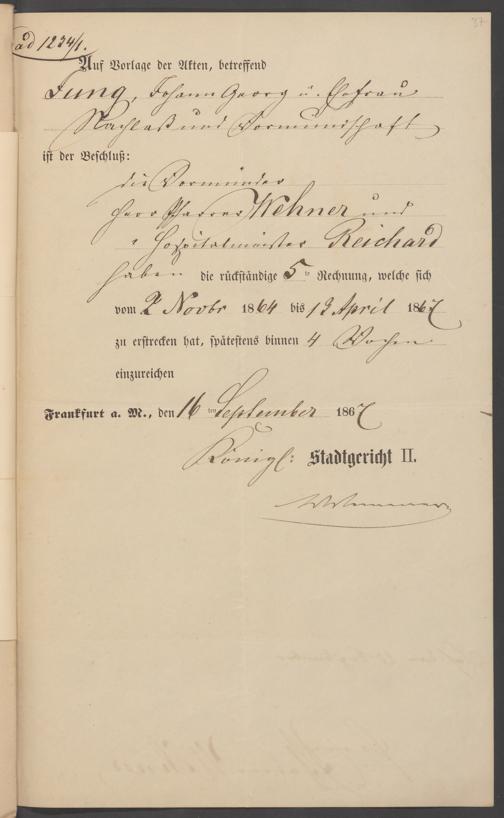 37
ad 1234/1.
Auf Vorlage der Akten, betreffend
Jung, Johann Georg u. Ehefrau
Nachlaß und Vormundschaft
ist der Beschluß:
die Vormünder
Herr Pfarrer Wehner und
" Hospitalmeister Reichard
haben die rückständige 5te Rechnung, welche sich
vom 2 Novbr 1864 bis 13 April 1867
zu erstrecken hat, spätestens binnen 4 Wochen
einzureichen
Frankfurt a. M., den 16ten September 1867
Königl: Stadtgericht II.